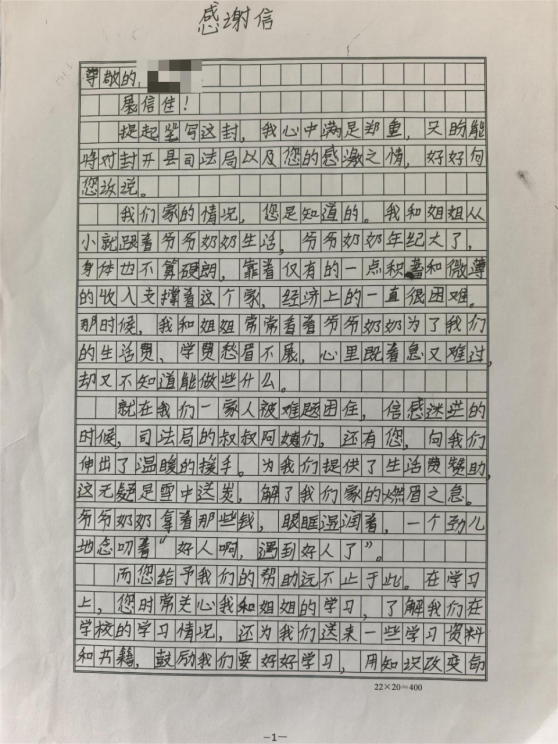 感谢信
尊敬的
展信佳！
提起笔写这封，我心中满是郑重，又盼能
将对封开县司法局以及您的感激之情，好好向
您诉说。
我们家的情况，您是知道的。我和姐姐从
小就跟着爷爷奶奶生活，爷爷奶奶年纪大了，
身体也不算硬朗，靠着仅有的一点积蓄和微薄
的收入支撑着这个家，经济上的一直很困难。
那时候，我和姐姐常常看着爷爷奶奶为了我们
的生活费、学费愁眉不展，心里既着急又难过，
却又不知道能做些什么。
就在我们一家人被难题困住，倍感迷茫的
时候，司法局的叔叔阿姨们，还有您，向我们
伸出了温暖的援手。为我们提供了生活费赞助，
这无疑是雪中送炭，解了我们家的燃眉之急。
爷爷奶奶拿着那些钱，眼眶湿润着，一个劲儿
地念叨着“好人啊，遇到好人了”。
而您给予我们的帮助远不止于此。在学习
上，您时常关心我和姐姐的学习，了解我们在
学校的学习情况，还为我们送来一些学习资料
和书籍，鼓励我们要好好学习，用知识改变命
22×20=400
-1-